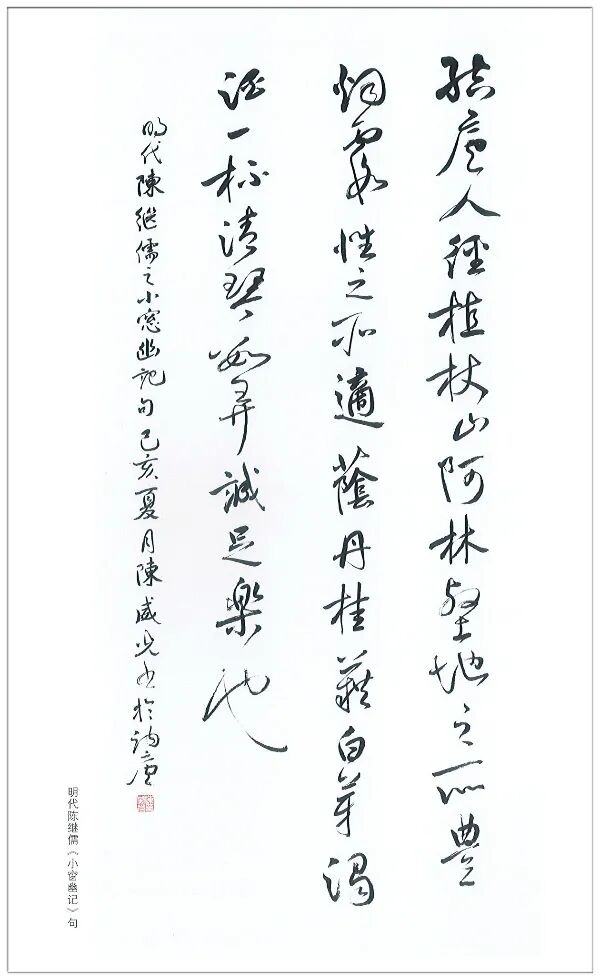 結廬人徑植杖山阿林壑地之所豊
烟霞性之所適蔭丹桂藉白茅濁
酒一杯清琴數弄誠足樂也
明代陳継儒之小窓幽記句己亥夏月陳威光书於廬
明代陈继儒《小窗幽记》句